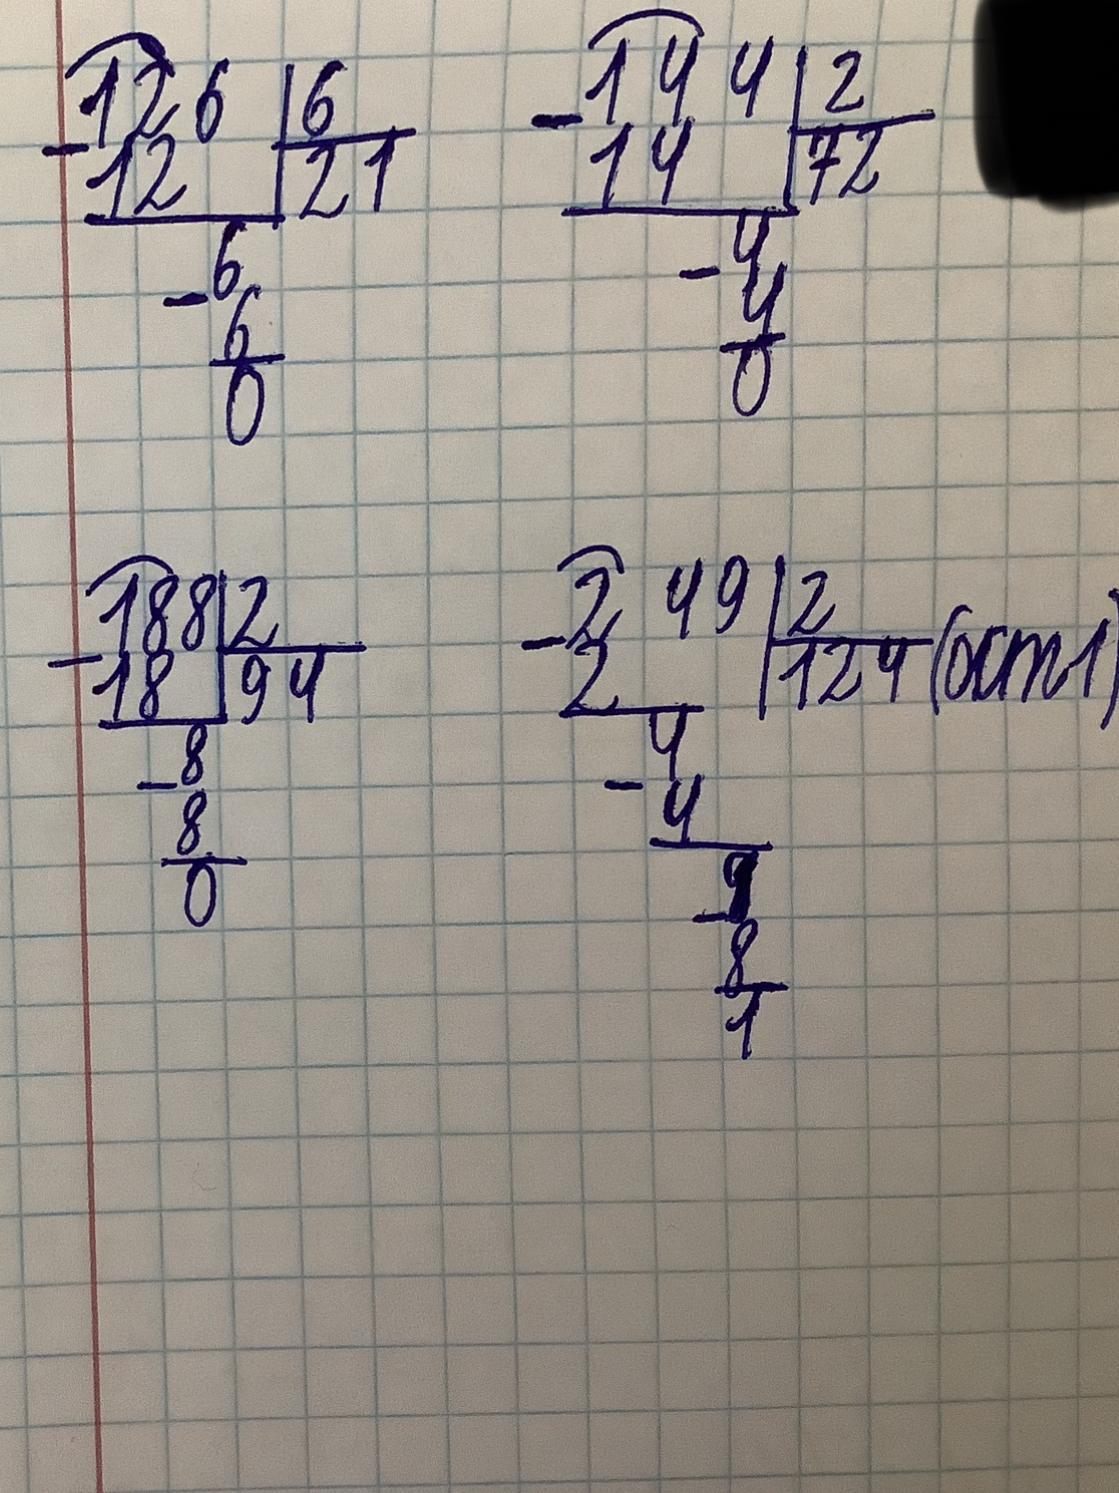 126 | 6
- 12 | 21
6
- 6
0
144 | 2
- 14 | 72
4
- 4
0
188 | 2
- 18 | 94
8
- 8
0
249 | 2
- 2 | 124 (ост 1)
4
- 4
9
- 8
1